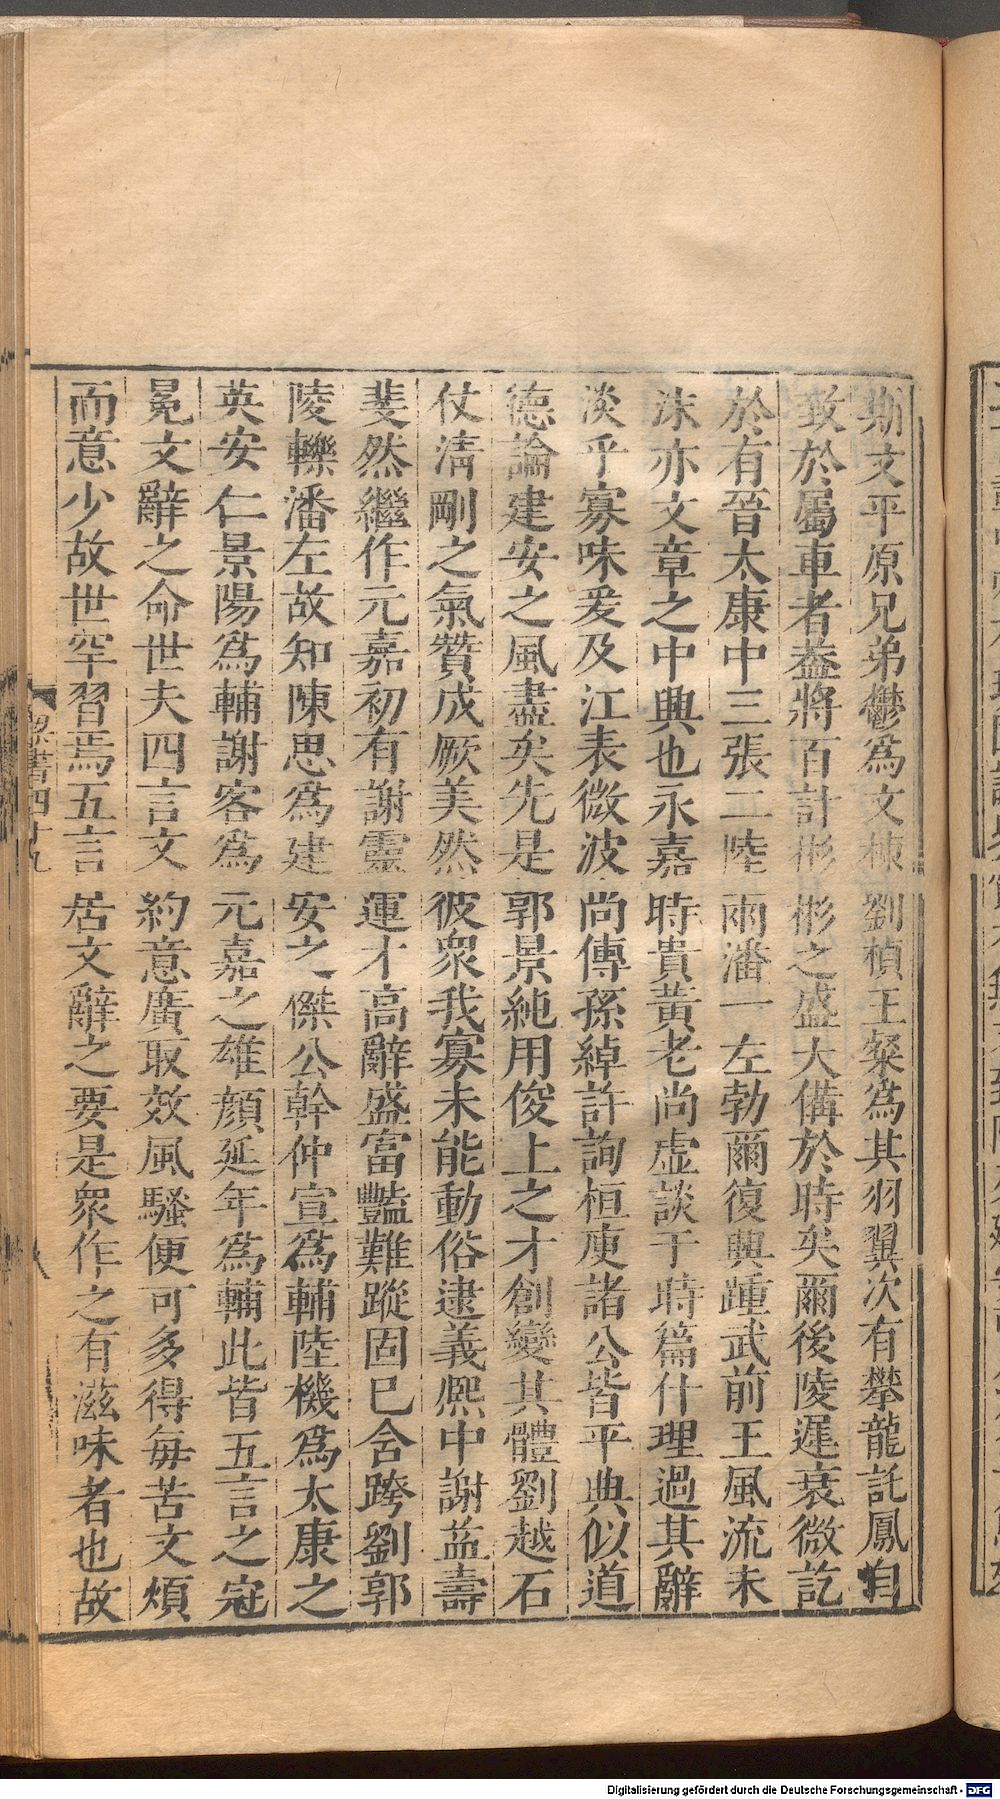 斯文平原兄弟鬱爲文棟劉楨王粲爲其羽翼次有攀龍託鳳自
致於屬車者蓋將百計彬彬之盛大備於時矣爾後陵遲衰微訖
於有晉太康中三張二陸兩潘一左勃爾復興踵武前王風流未
沫亦文章之中興也永嘉時貴黃老尚虛談于時篇什理過其辭
淡乎寡味爰及江表微波尚傳孫綽許詢桓庾諸公皆平典似道
德論建安之風盡矣先是郭景純用俊上之才創變其體劉越石
仗淸剛之氣贊成厥美然彼衆我寡未能動俗逮義熙中謝益壽
斐然繼作元嘉初有謝靈運才高辭盛富豔難蹤固已含跨劉郭
陵轢潘左故知陳思爲建安之傑公幹仲宣爲輔陸機爲太康之
英安仁景陽爲輔謝客爲元嘉之雄顏延年爲輔此皆五言之冠
冕文辭之命世夫四言文約意廣取效風騷便可多得每苦文煩
而意少故世罕習焉五言居文辭之要是衆作之有滋味者也故
梁書四十九
Digitalisierung gefördert durch die Deutsche Forschungsgemeinschaft - DFG